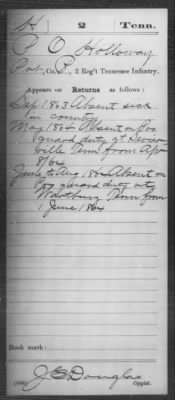 H 2 Tenn.
P O Holloway
Co. , 2 Reg't Tennessee Infantry.
Appears on Returns as follows:
Sep 1863 Absent sick
in country
May 1864 Absent on
guard duty at Sevier
ville Tenn from Apr
8/64
June to Aug. 1864 Absent on
guard duty at
Wartburg Tenn from
1 June 1864
Book mark:
J. E. Douglas
Copyist.